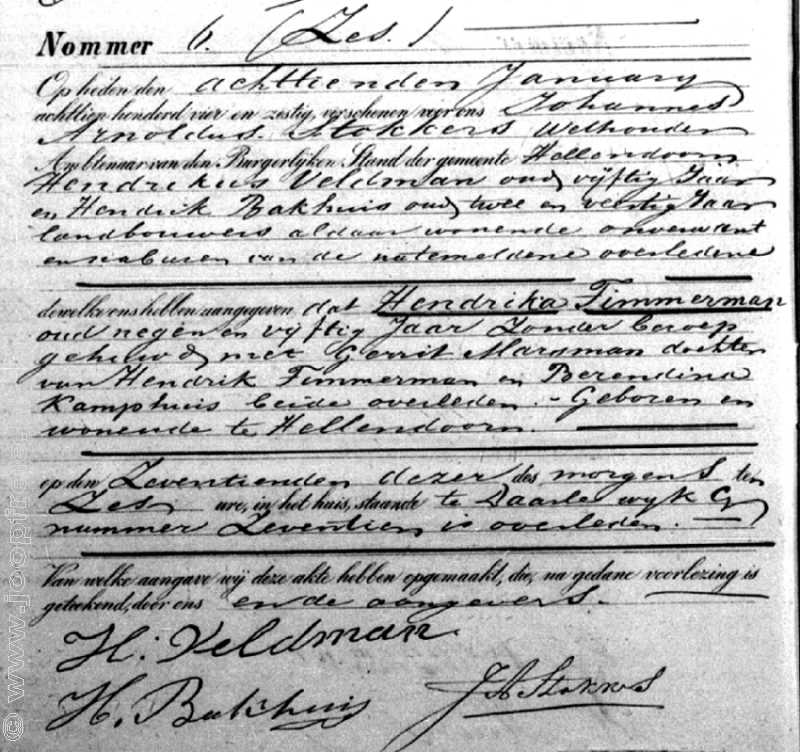 Nommer 6. (Zes.)
Op heden den achttienden January
achttien honderd vier en zestig, verschenen voor ons Johannes
Arnoldus Stokkers Wethouder
Ambtenaar van den Burgerlijken Stand der gemeente Hellendoorn
Hendrikus Veldman oud vijftig Jaar
en Hendrik Bakhuis oud twee en veertig Jaar
landbouwers aldaar wonende onverwant
en naburen van de natemeldene overledene
dewelke ons hebben aangegeven dat Hendrika Timmerman
oud negen en vijftig Jaar Zonder beroep
gehuwd met Gerrit Marsman dochter
van Hendrik Timmerman en Berendina
Kamphuis beide overleden. - Geboren en
wonende te Hellendoorn.
op den Zeventienden dezer des morgens ten
Zes ure, in het huis, staande te Daarle wyk G
nummer Zeventien is overleden.
Van welke aangave wij deze akte hebben opgemaakt, die, na gedane voorlezing is
geteekend, door ons en de aangevers.
H. Veldman.
H. Bakhuis
JA Stokkers
© www.joopfre